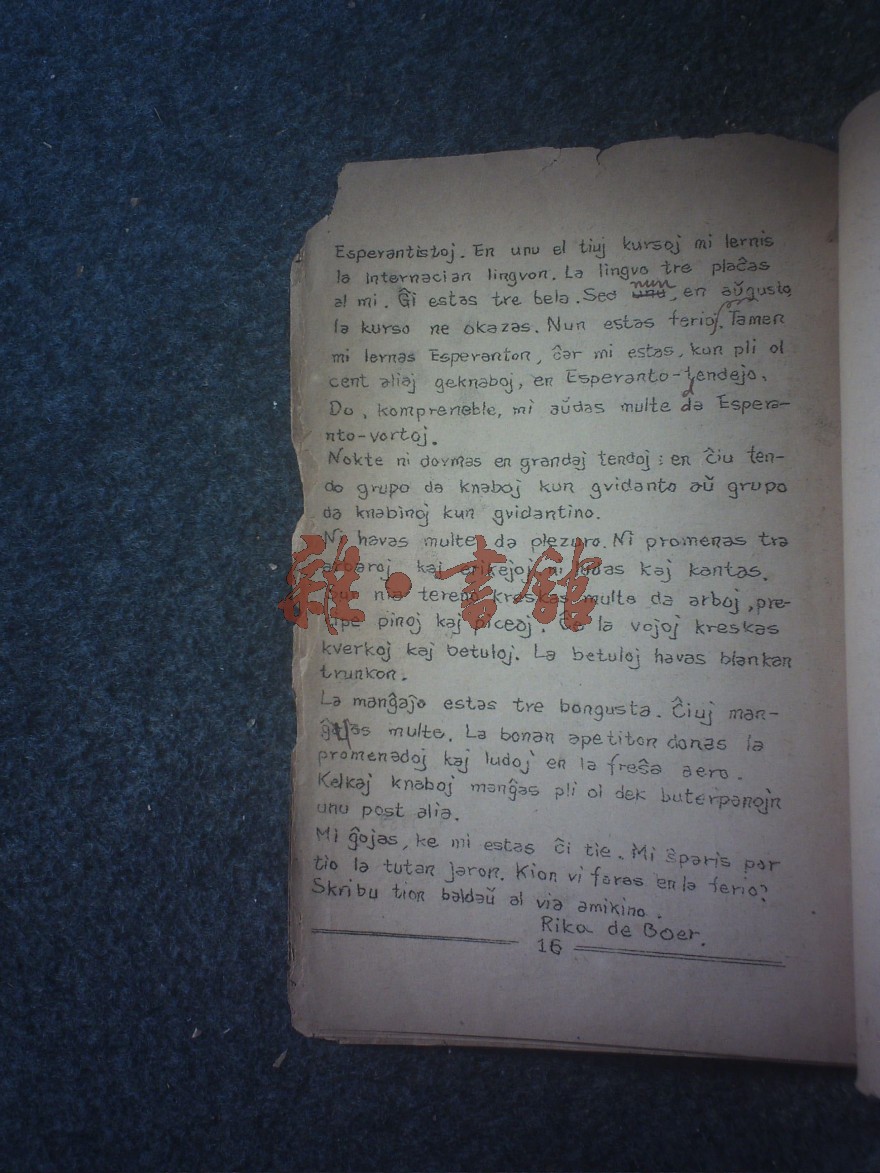 Esperantistoj. En unu el tiuj kursoj mi lernis
la internacian lingvon. La lingvo tre plaĉas
al mi. Ĝi estas tre bela. Sed nun, en aŭgusto
la kurso ne okazas. Nun estas ferioj. Tamen
mi lernas Esperanton, ĉar mi estas, kun pli ol
cent aliaj geknaboj, en Esperanto-tendejo.
Do, kompreneble, mi aŭdas multe da Espera-
nto-vortoj.
Nokte ni dormas en grandaj tendoj: en ĉiu ten-
do grupo da knaboj kun gvidanto aŭ grupo
da knabinoj kun gvidantino.
Ni havas multe da plezuro. Ni promenas tra
arbaroj kaj erikejoj ni ludas kaj kantas.
Sur nia tereno kreskas multe da arboj, pre-
cipe pinoj kaj piceoj. Ĉe la vojoj kreskas
kverkoj kaj betuloj. La betuloj havas blankan
trunkon.
La manĝaĵo estas tre bongusta. Ĉiuj man-
ĝas multe. La bonan apetiton donas la
promenadoj kaj ludoj en la freŝa aero.
Kelkaj knaboj manĝas pli ol dek buterpanojn
unu post alia.
Mi ĝojas, ke mi estas ĉi tie. Mi ŝparis por
tio la tutan jaron. Kion vi faras en la ferio?
Skribu tion baldaŭ al via amikino.
Rika de Boer.
16
雜·書館